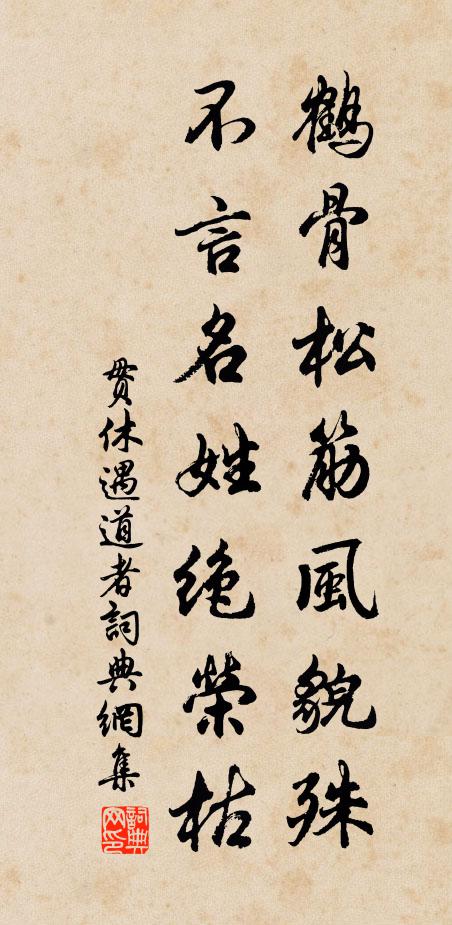 鶴骨松筋風貌殊
不言名姓絶榮枯
貫休遇道者詞典網集
詞典网印